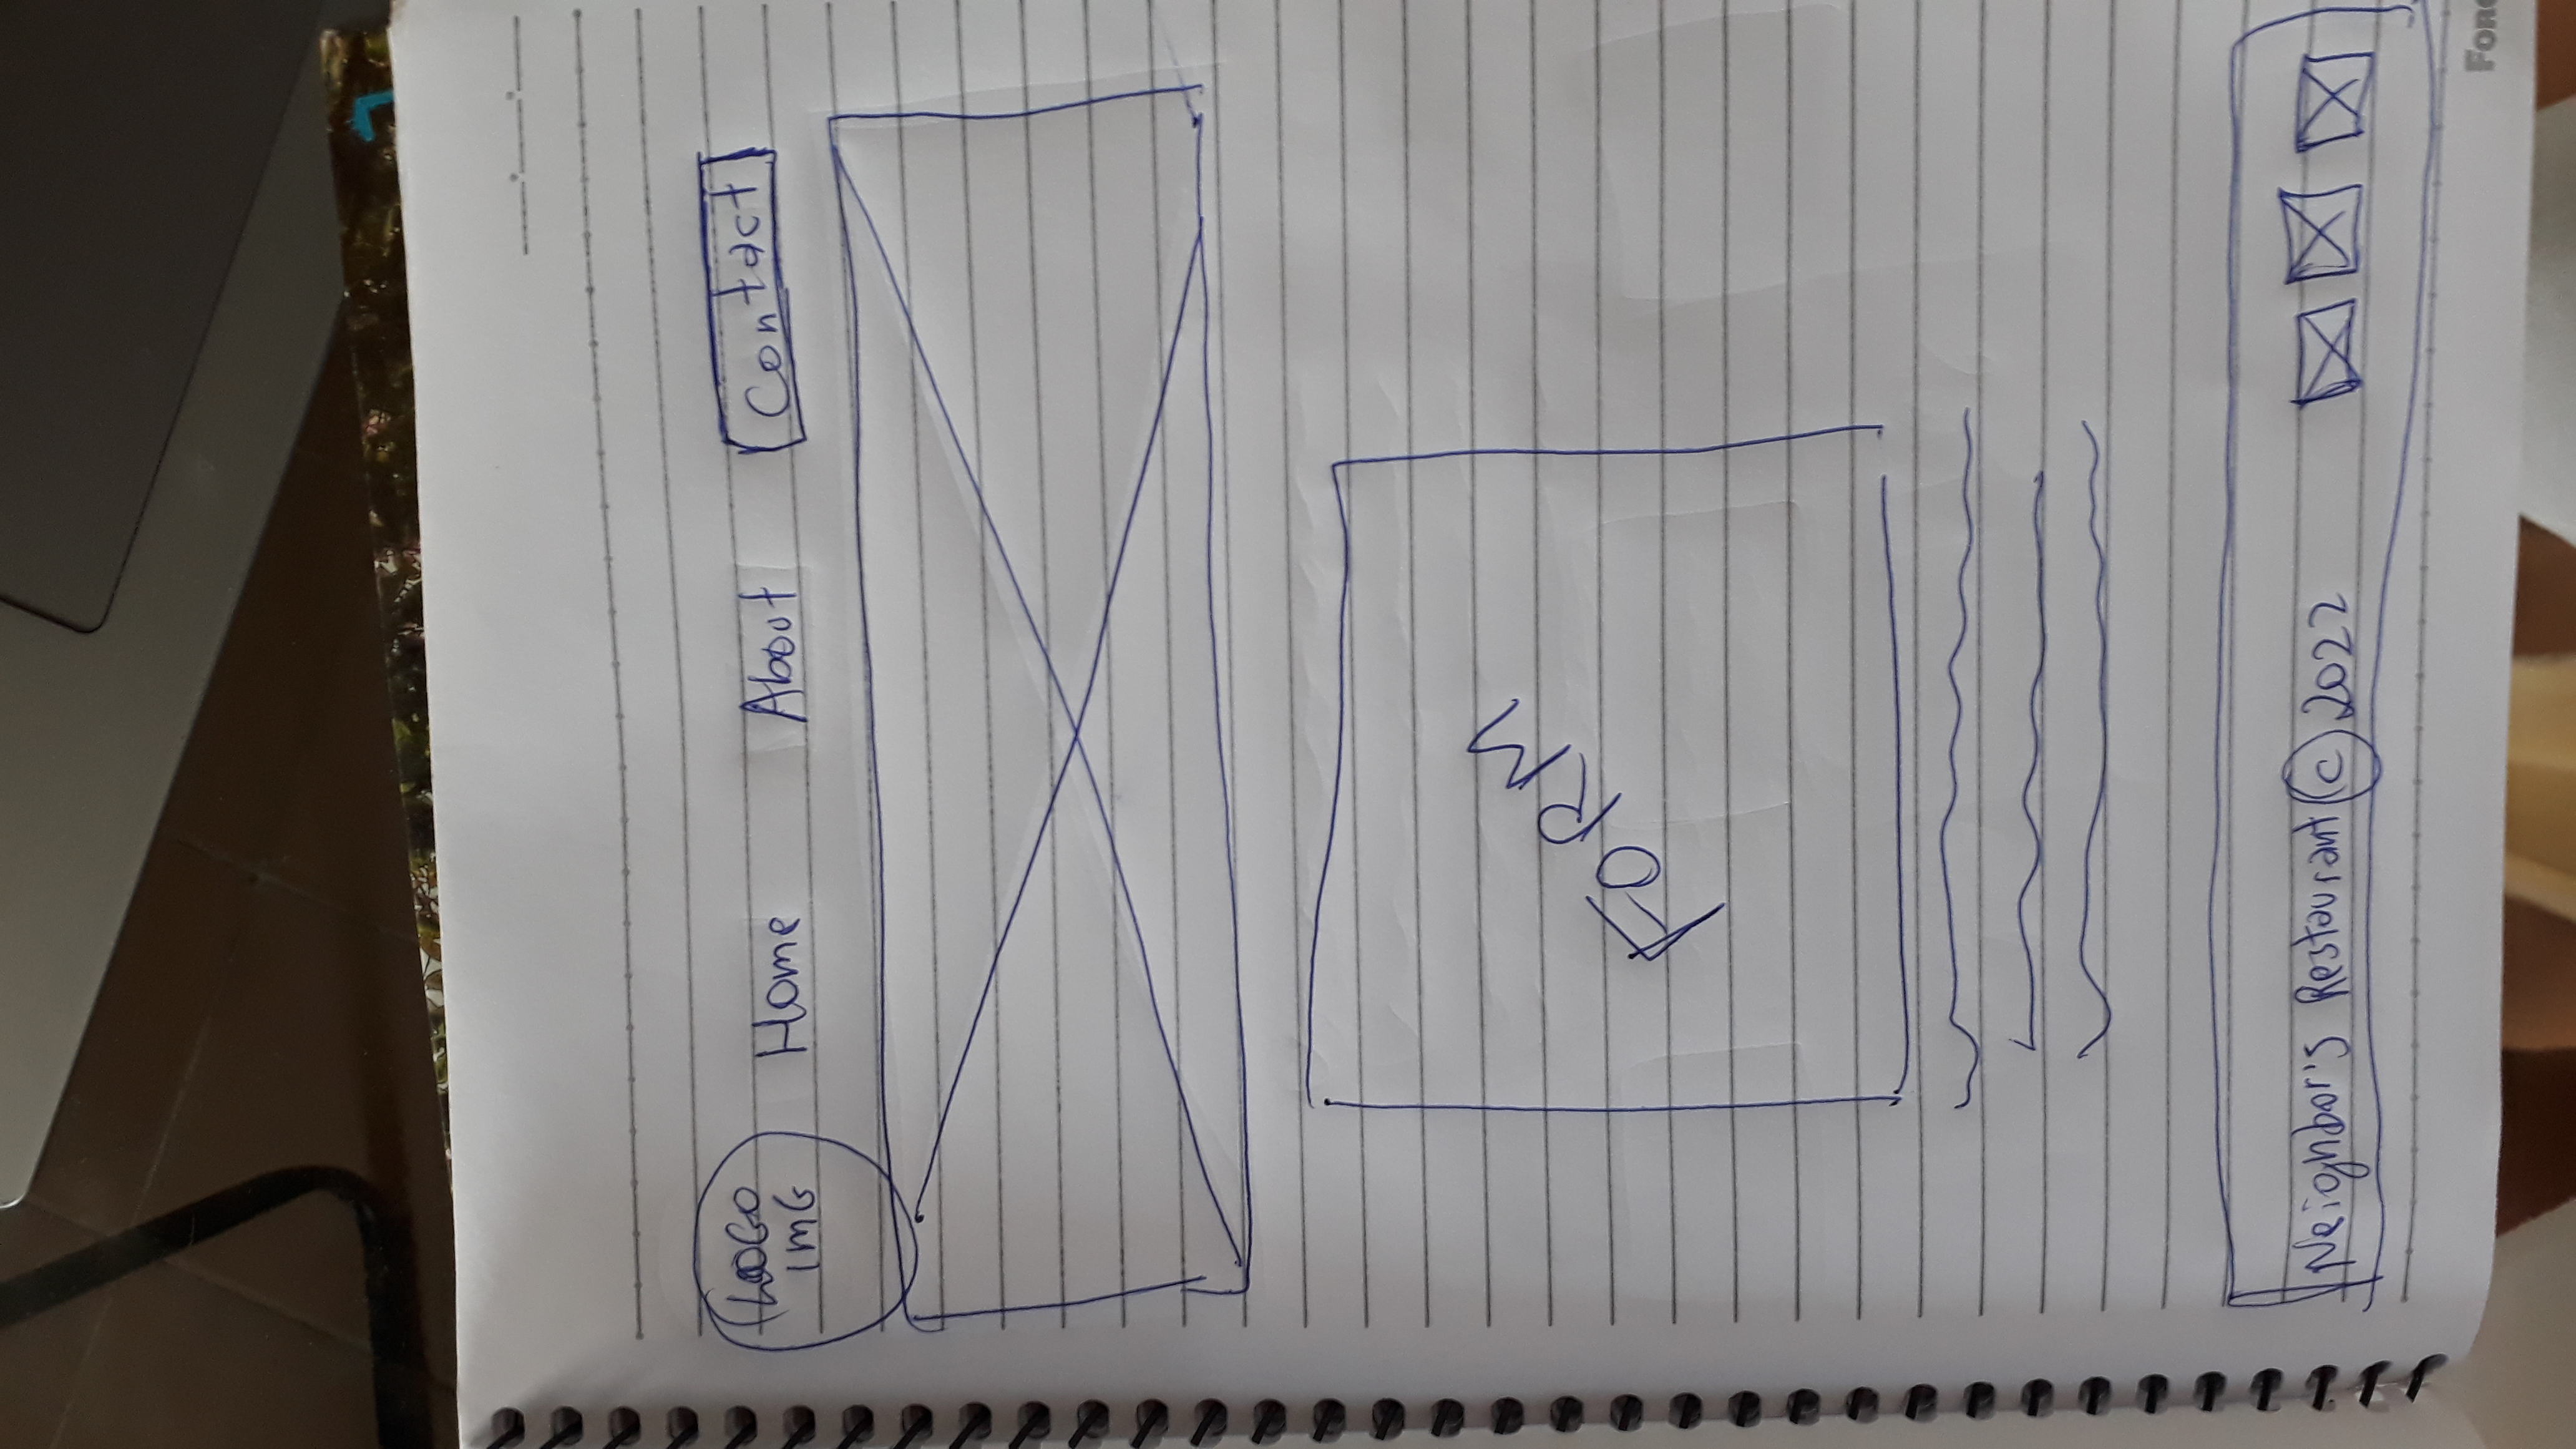 LOGO
IMG
Home About Contact
FORM
Neighbor's Restaurant © 2022